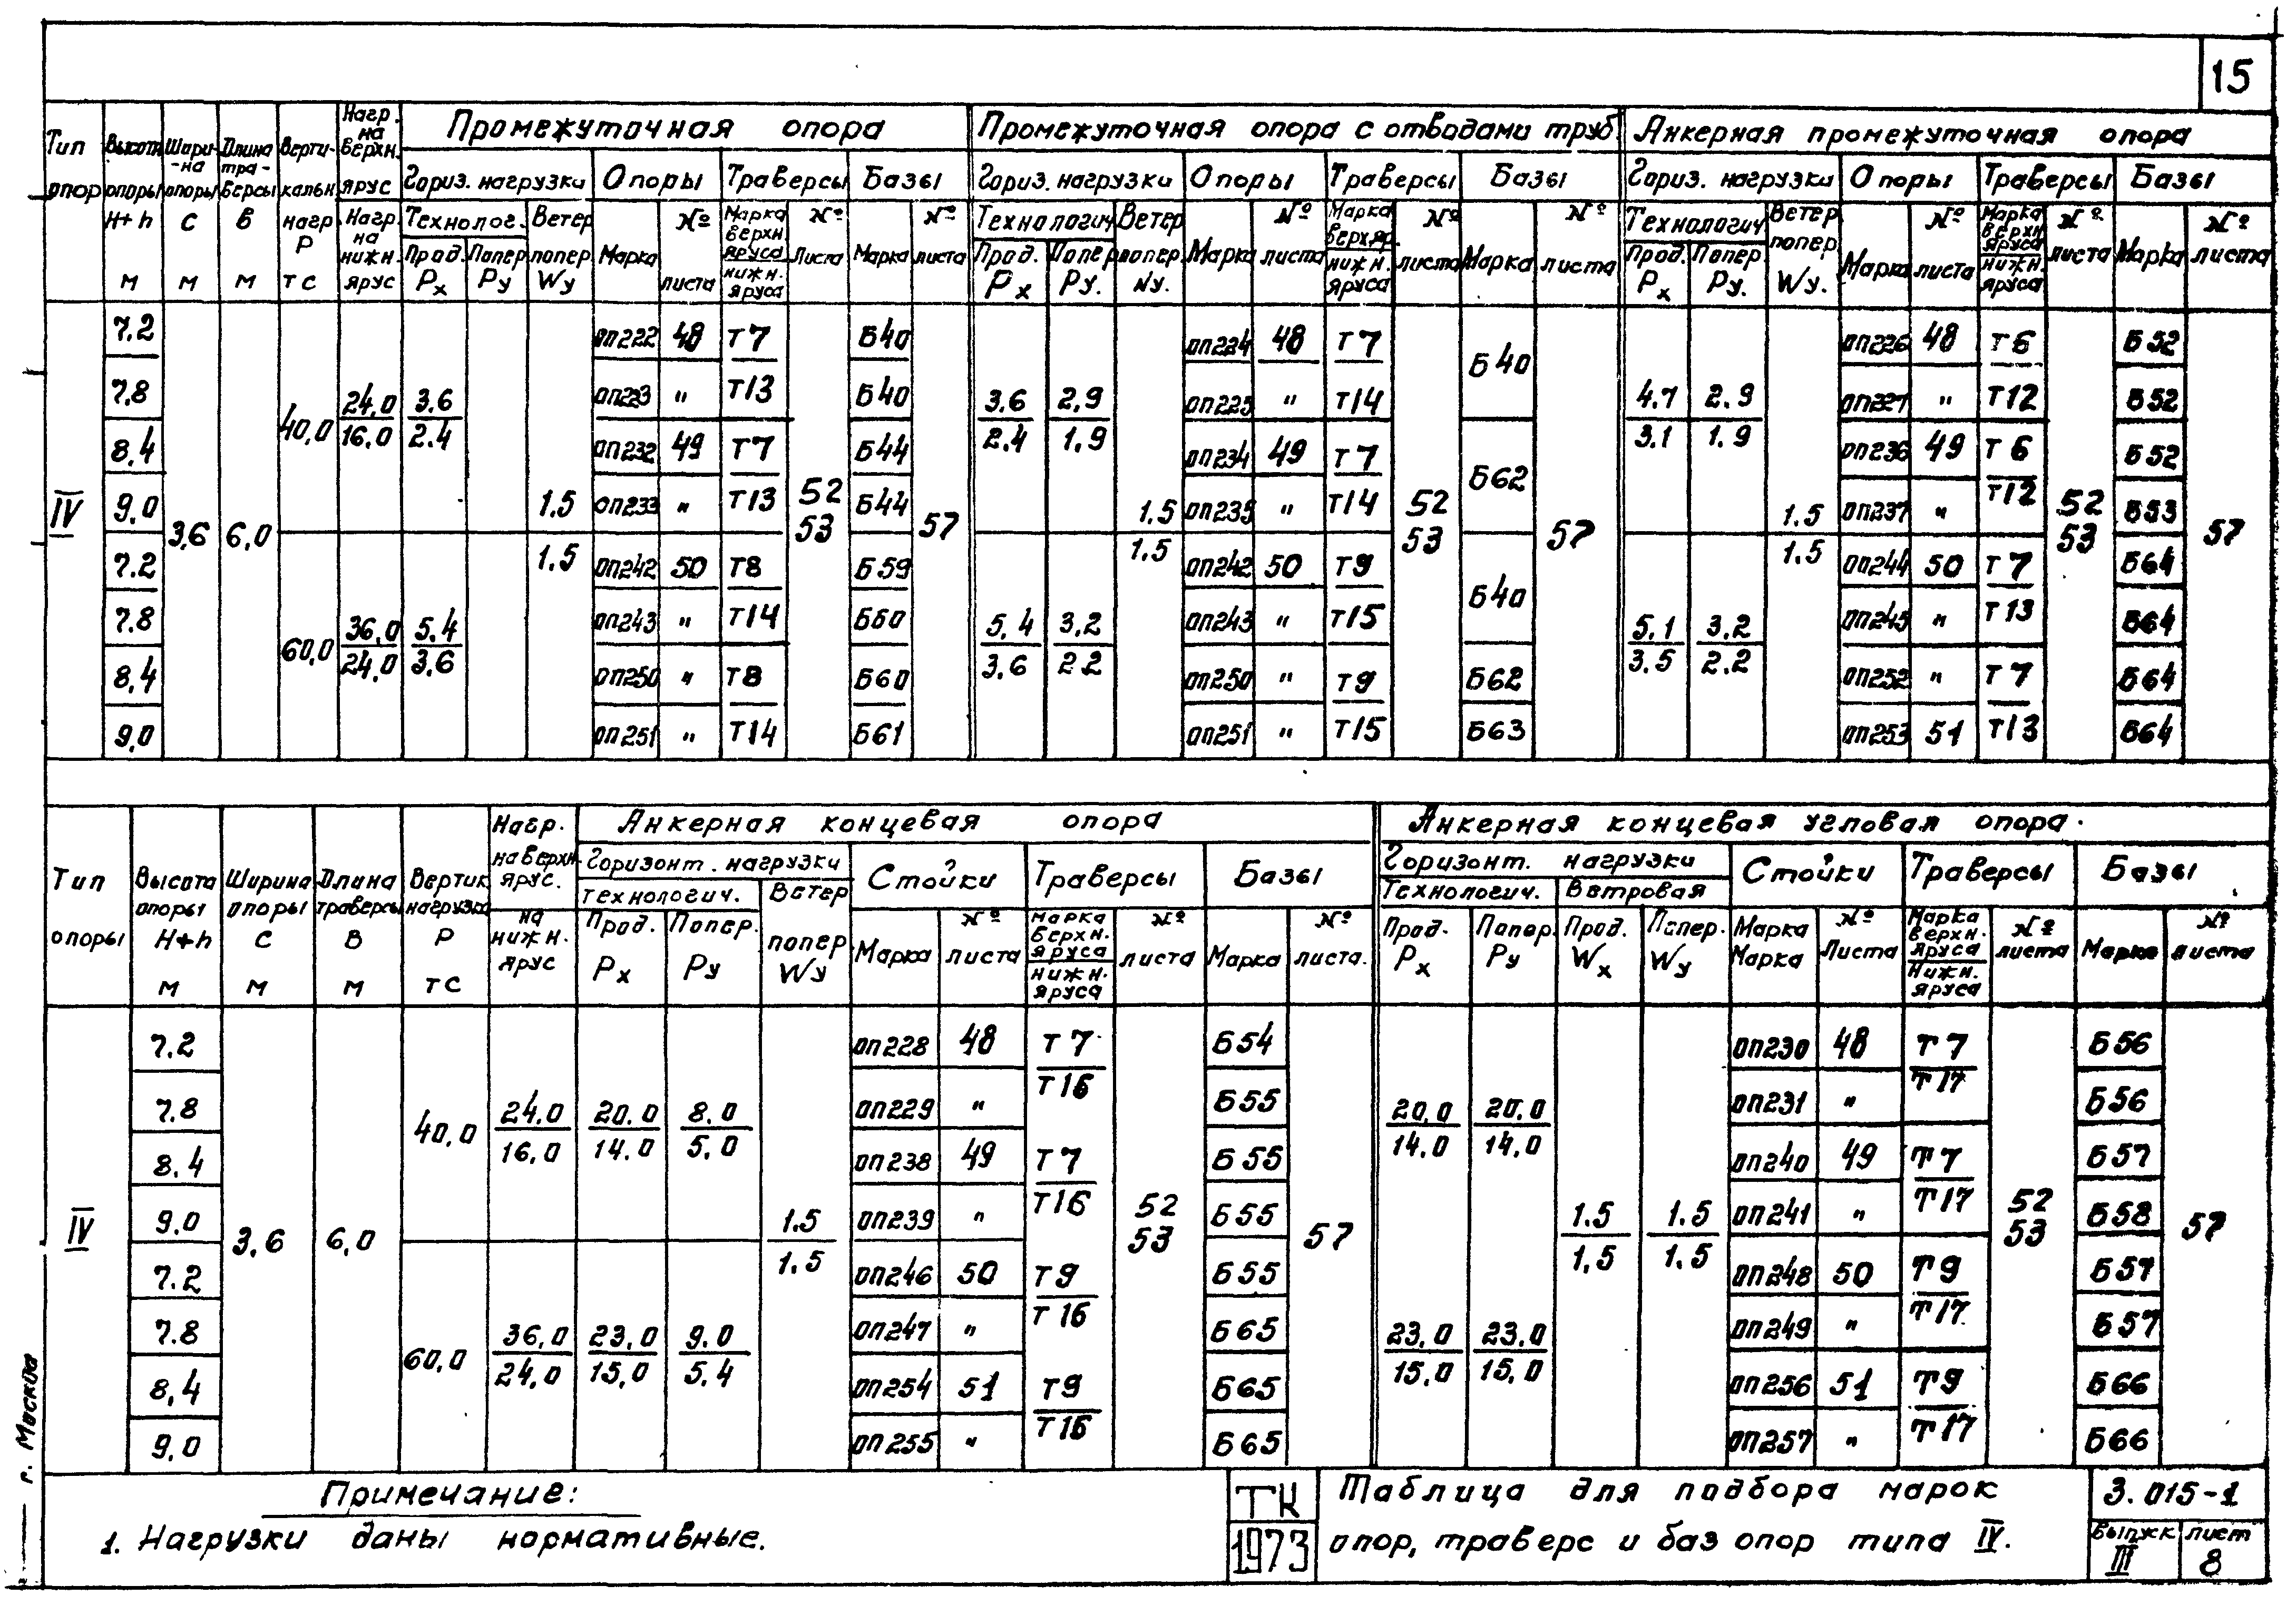 15
Тип опор | Высота опоры H+h м | Шири-на опоры С м | Длина тра-версы В м | Верти-кальн нагр Р тс | Нагр. на верхн. ярус | Промежуточная опора | Промежуточная опора с отводами труб | Анкерная промежуточная опора
Гориз. нагрузки | Опоры | Траверсы | Базы | Гориз. нагрузки | Опоры | Траверсы | Базы | Гориз. нагрузки | Опоры | Траверсы | Базы
Нагр. на нижн. ярус | Технолог. | Ветер попер Wy | Марка | № листа | Марка верхн яруса нижн. яруса | № листа | Марка | № листа | Технологич | Ветер попер. | Марка | № листа | Марка верхн. яруса нижн. яруса | № листа | Марка | № листа | Технологич | Ветер попер. Wy. | Марка | № листа | Марка верхн яруса нижн. яруса | № листа | Марка | № листа
Прод. Px | Попер Py | Прод. Px | Попер Py. | Прод. Px | Попер. Py.
IV | 3,6 | 6,0 | 1.5 1.5 | 52 53 | 57 | 1.5 1.5 | 52 53 | 57 | 1.5 1.5 | 52 53 | 57
40,0 | 24,0 16,0 | 3.6 2.4 | 3.6 2.4 | 2.9 1.9 | 4.7 3.1 | 2.9 1.9
7.2 | оп222 | 48 | Т7 | Б40 | оп224 | 48 | Т7 | Б40 | оп226 | 48 | Т6 | Б52
7.8 | оп223 | " | Т13 | Б40 | оп225 | " | Т14 | оп227 | " | Т12 | Б52
8.4 | оп232 | 49 | Т7 | Б44 | оп234 | 49 | Т7 | Б62 | оп236 | 49 | Т6 | Б52
9.0 | оп233 | " | Т13 | Б44 | оп235 | " | Т14 | оп237 | " | Т12 | Б53
60,0 | 36,0 24,0 | 5.4 3.6 | 5.4 3.6 | 3.2 2.2 | 5.1 3.5 | 3.2 2.2
7.2 | оп242 | 50 | Т8 | Б59 | оп242 | 50 | Т9 | Б40 | оп244 | 50 | Т7 | Б64
7.8 | оп243 | " | Т14 | Б60 | оп243 | " | Т15 | оп245 | " | Т13 | Б64
8,4 | оп250 | " | Т8 | Б60 | оп250 | " | Т9 | Б62 | оп252 | " | Т7 | Б64
9,0 | оп251 | " | Т14 | Б61 | оп251 | " | Т15 | Б63 | оп253 | 51 | Т13 | Б64
Тип опоры | Высота опоры H+h м | Ширина опоры С м | Длина траверсы В м | Вертик. нагрузка Р тс | Нагр. на верхн. ярус. | Анкерная концевая опора | Анкерная концевая угловая опора.
Горизонт. нагрузки | Стойки | Траверсы | Базы | Горизонт. нагрузки | Стойки | Траверсы | Базы
на нижн. ярус | технологич. | Ветер попер Wy | Марка | № листа | марка верхн. яруса нижн. яруса | № листа | Марка | № листа. | Технологич. | Ветровая | Марка Марка | № Листа | Марка верхн. яруса нижн. яруса | № листа | Марка | № листа
Прод. Px | Попер. Py | Прод. Px | Попер. Py | Прод. Wx | Попер. Wy
IV | 3,6 | 6,0 | 1.5 1.5 | 52 53 | 57 | 1.5 1.5 | 1.5 1.5 | 52 53 | 57
40,0 | 24.0 16,0 | 20.0 14.0 | 8.0 5.0 | 20,0 14.0 | 20.0 14,0
7.2 | оп228 | 48 | Т7 | Б54 | оп230 | 48 | Т7 | Б56
7.8 | оп229 | " | Т16 | Б55 | оп231 | " | Т17 | Б56
8.4 | оп238 | 49 | Т7 | Б55 | оп240 | 49 | Т7 | Б57
9.0 | оп239 | " | Т16 | Б55 | оп241 | " | Т17 | Б58
60,0 | 36,0 24,0 | 23,0 15,0 | 9.0 5.4 | 23,0 15,0 | 23.0 15,0
7.2 | оп246 | 50 | Т9 | Б55 | оп248 | 50 | Т9 | Б57
7.8 | оп247 | " | Т16 | Б65 | оп249 | " | Т17 | Б57
8,4 | оп254 | 51 | Т9 | Б65 | оп256 | 51 | Т9 | Б66
9,0 | оп255 | " | Т16 | Б65 | оп257 | " | Т17 | Б66
Примечание:
1. Нагрузки даны нормативные.
ТК
1973
Таблица для подбора марок
опор, траверс и баз опор типа IV.
3.015-1
Выпуск III
лист 8
г. Москва